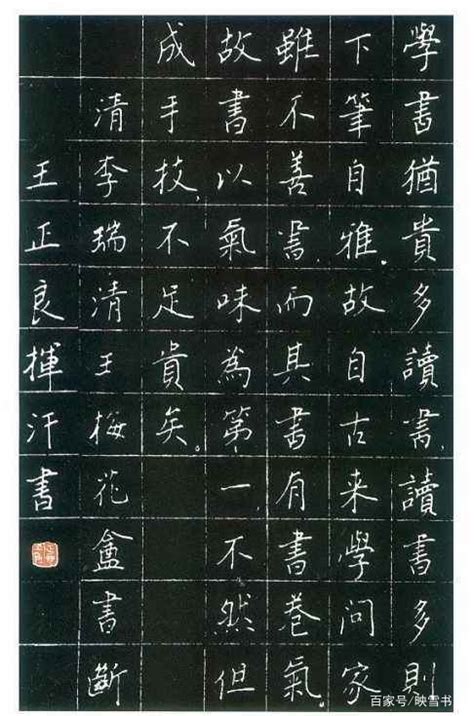 學書猶貴多讀書,讀書多則
下筆自雅,故自古来學問家
雖不善書,而其書有書卷氣。
故書以氣味為第一,不然但
成手技,不足貴矣。
清李瑞清王梅花盦書斷
王正良揮汗書
百家号/映雪书